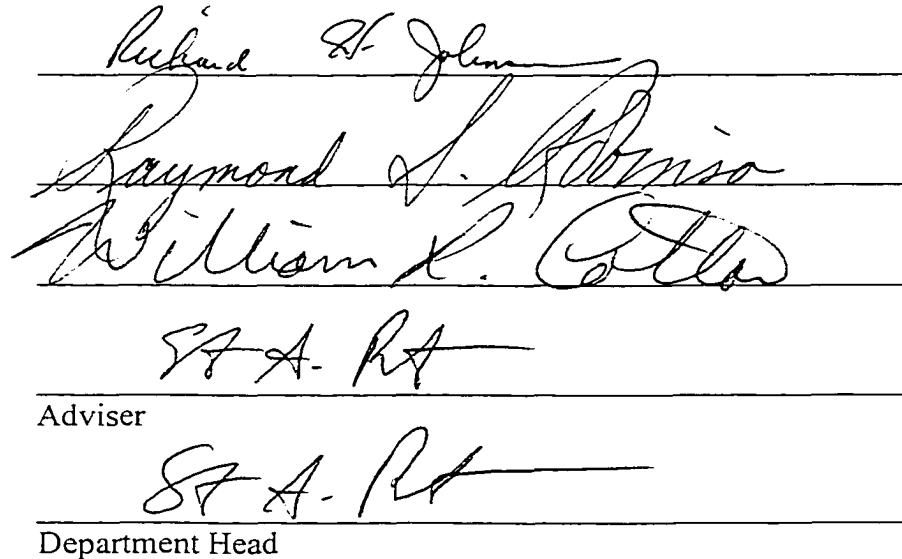 Richard H. Johnson
Raymond S. Robinson
William R. Cotton
St A. Rt
Adviser
St A. Rt
Department Head